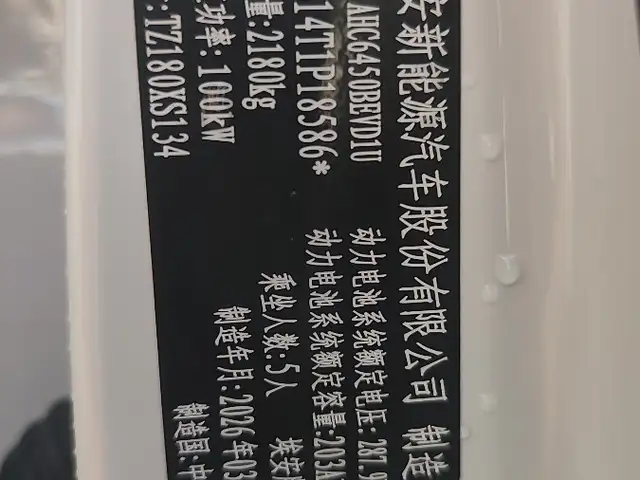 安新能源汽车股份有限公司 制造
AHC6450BEVD1U 动力电池系统额定电压: 287.9
14T1P18586* 动力电池系统额定容量:203A
量:2180kg 乘坐人数:5人 埃安
功率:100kW 制造年月:2026年03
:TZ180XS134 制造国:中